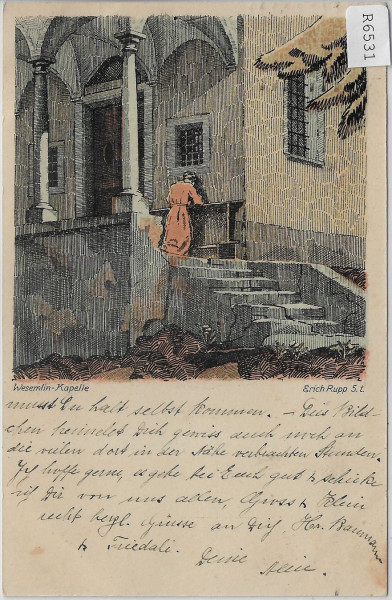 R6531
Wesemlin-Kapelle
Erich Rupp S. t.
musst Du halt selbst kommen. – Dies Bild-
chen heimelt Dich gewiss auch noch an
die vielen dort in der Nähe verbrachten Stunden.
Ich hoffe gerne, es gehe bei Euch gut & schicke
ich Dir von uns allen, Gross & Klein
recht herzl. Grüsse an Dich, Hr. Baumann
& Friedali.
Deine